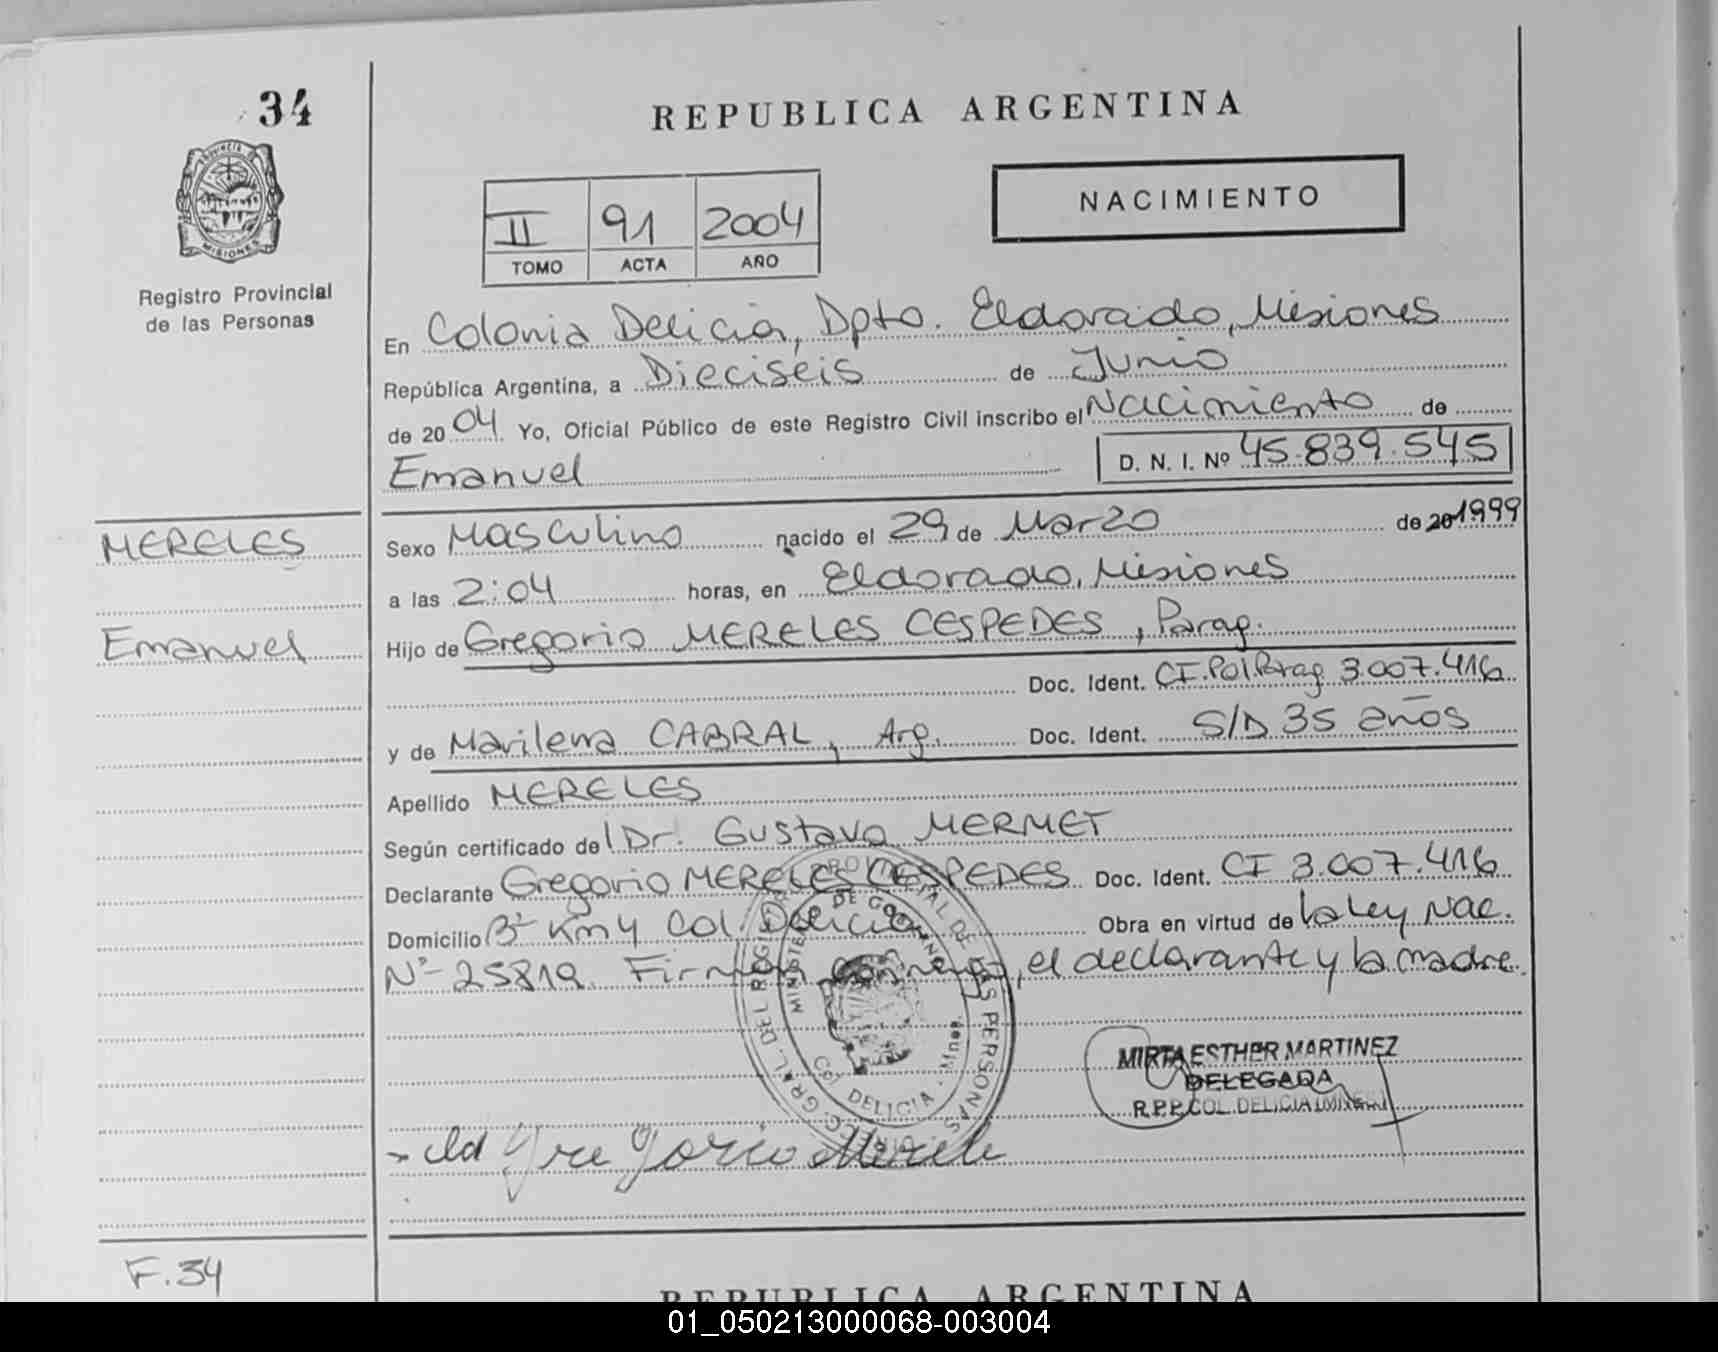 34
REPUBLICA ARGENTINA
PROVINCIA DE
MISIONES
Registro Provincial
de las Personas
II 91 2004
TOMO ACTA AÑO
NACIMIENTO
En Colonia Delicia, Dpto. Eldorado, Misiones
República Argentina, a Dieciseis de Junio
de 2004 Yo, Oficial Público de este Registro Civil inscribo el Nacimiento de
Emanuel D. N. I. Nº 45.839.545
MERELES
Emanuel
Sexo Masculino nacido el 29 de Marzo de 20 1999
a las 2:04 horas, en Eldorado, Misiones
Hijo de Gregorio MERELES CESPEDES, Parag.
Doc. Ident. CI.Pol.Parag 3.007.416
y de Marilena CABRAL, Arg. Doc. Ident. S/D 35 años
Apellido MERELES
Según certificado de l Dr. Gustavo MERMET
Declarante Gregorio MERELES CESPEDES Doc. Ident. CI 3.007.416
Domicilio Bº Km 4 Col. Delicia Obra en virtud de la Ley Nac.
Nº 25819. Firman conmigo, el declarante y la madre.
MIRTA ESTHER MARTINEZ
DELEGADA
R.P.P. COL. DELICIA (MNES)
DELICIA - Mnes.
Gregorio Merele
F.34
REPUBLICA ARGENTINA
01_050213000068-003004